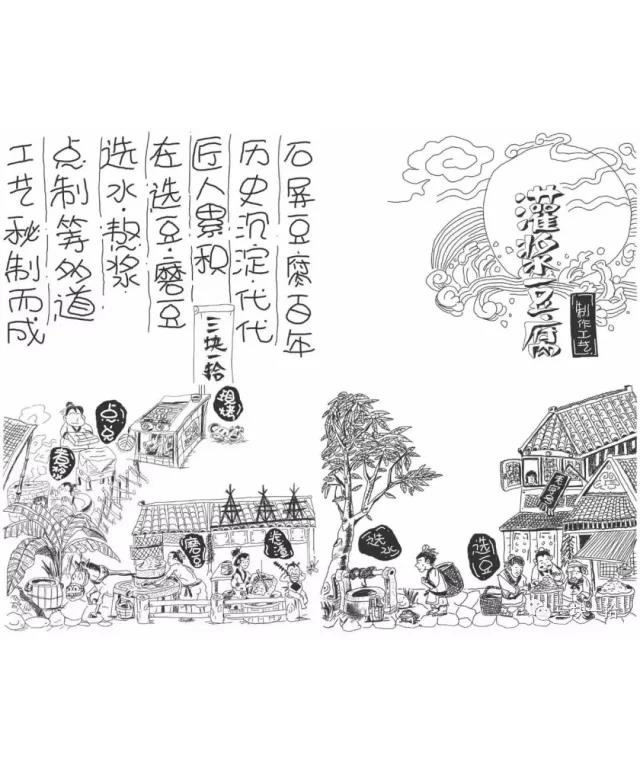 灌浆豆腐
制作工艺
选豆
选水
石屏豆腐百年
历史沉淀·代代
匠人累积
在选豆·磨豆
选水·熬浆
点制等多道
工艺秘制而成
三块一拾
磨豆
煮浆